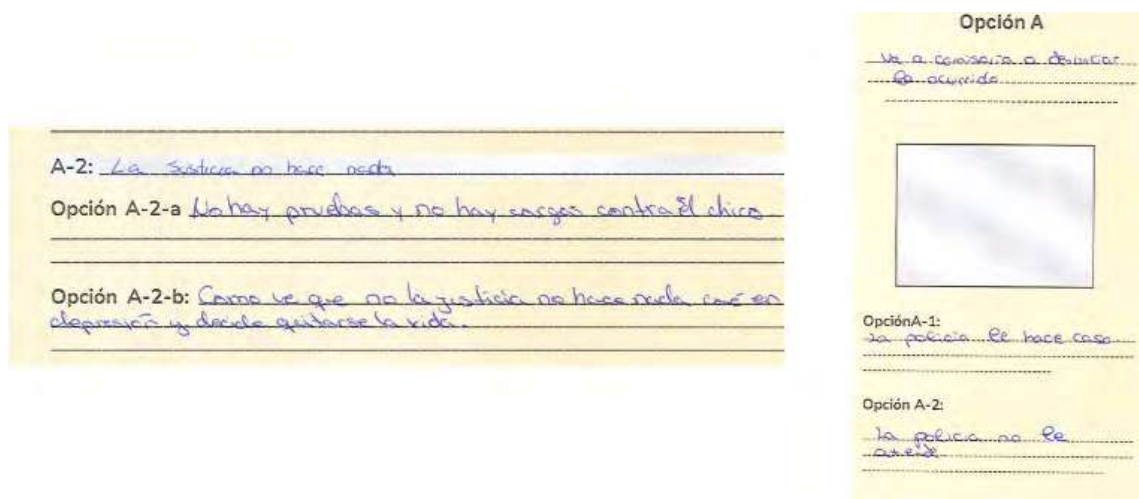 A-2: La Justicia no hace nada
Opción A-2-a No hay pruebas y no hay cargos contra él chico
Opción A-2-b: Como ve que no la justicia no hace nada caé en
depresión y decide quitarse la vida.
Opción A
Va a comisaria a denunciar
lo ocurrido
OpciónA-1:
La policia le hace caso
Opción A-2:
La policia no le
atende